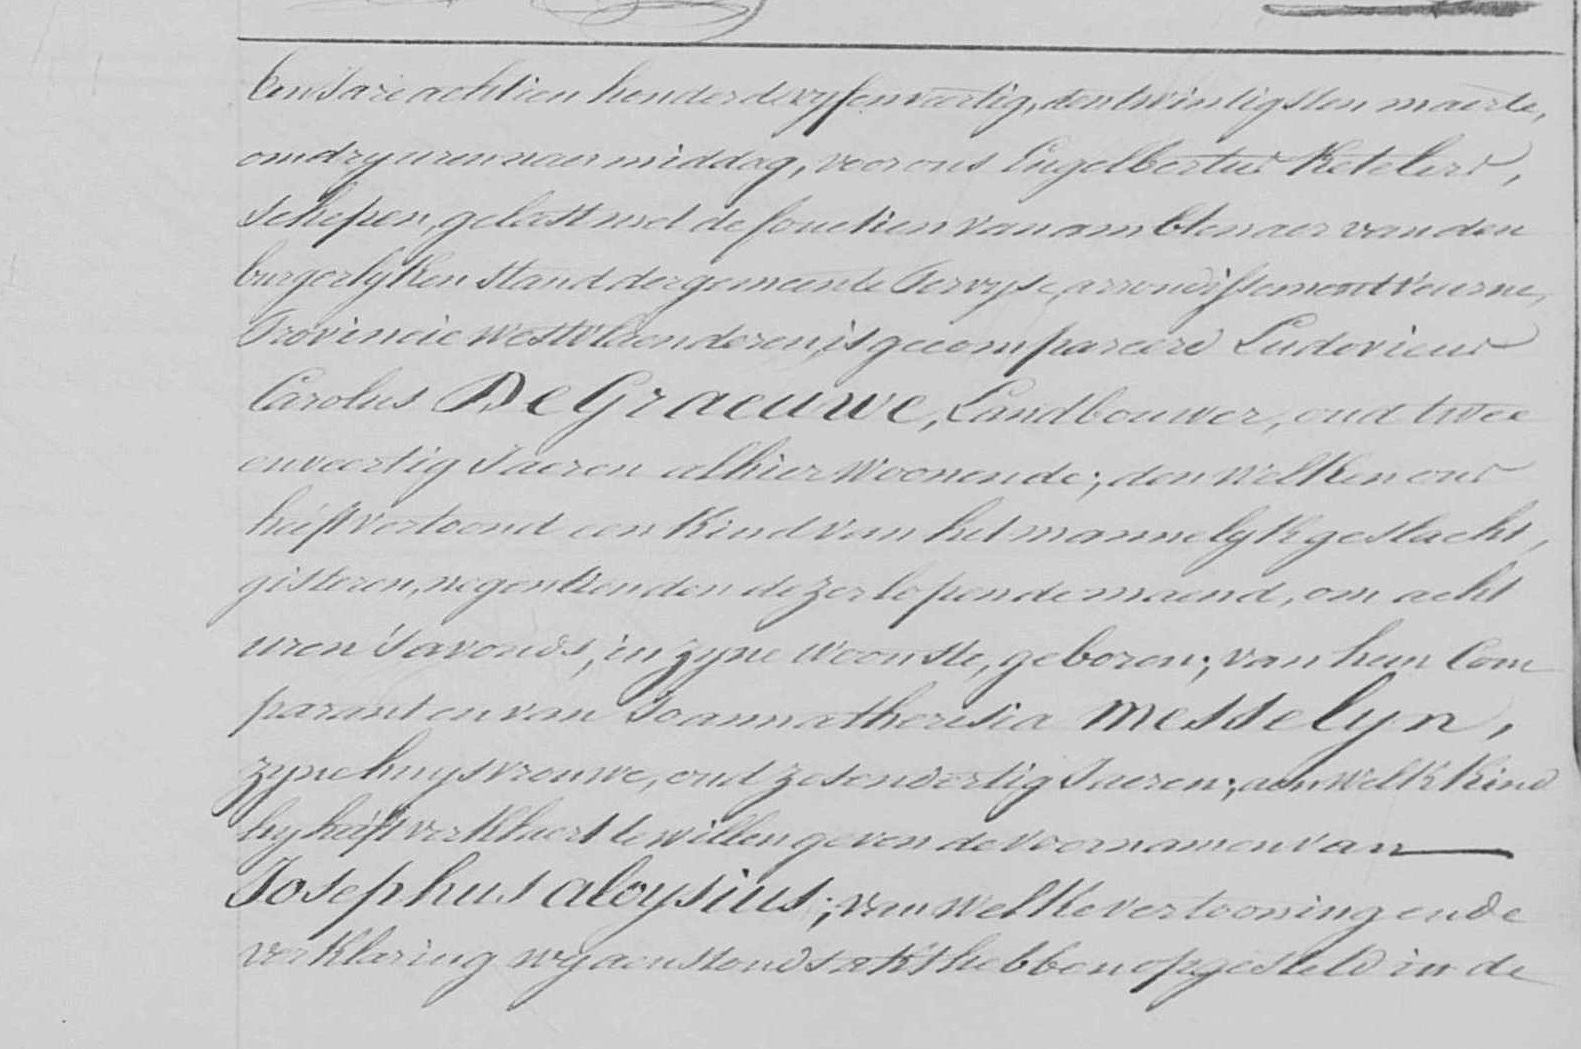 Ten Jare achtien honderd vyfenveertig, den twintigsten maerte,
om dry uren naer middag, voor ons Engelbertus Ketelers,
Schepen, gelast met de fonctien van ambtenaer van den
burgerlyken Stand der gemeente Pervyse, arrondissement Veurne,
Provincie WestVlaenderen, is gecompareerd Ludovicus
Carolus De Graeuwe, Landbouwer, oud twee
enveertig Jaeren alhier Woonende; den Welken ons
heeft vertoond een Kind van het mannelyk geslacht,
gisteren, negentienden dezer lopende maend, om acht
uren 's avonds, in zyne Woonste, geboren; van hem Com
parant en van Joanna theresia Messelyn,
zyne huysvrouwe, oud zesendertig Jaeren; aen Welk Kind
hy heeft verklaert te willen geven de voornamen van
Josephus aloysius; van Welke vertooning ende
verklaring wy aenstonds akt hebben opgesteld in de